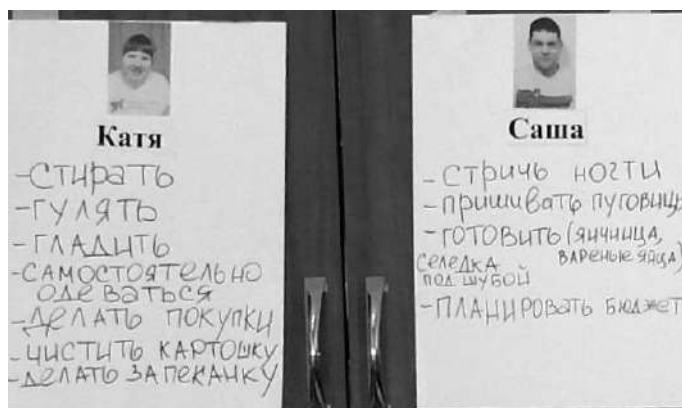 Катя
-СТИРАТЬ
-ГУЛЯТЬ
-ГЛАДИТЬ
-САМОСТОЯТЕЛЬНО
ОДЕВАТЬСЯ
-ДЕЛАТЬ ПОКУПКИ
-ЧИСТИТЬ КАРТОШКУ
-ДЕЛАТЬ ЗАПЕКАНКУ
Саша
-СТРИЧЬ НОГТИ
-ПРИШИВАТЬ ПУГОВИЦЫ
-ГОТОВИТЬ (ЯИЧНИЦА,
ВАРЕНЫЕ ЯЙЦА)
СЕЛЕДКА
ПОД ШУБОЙ
-ПЛАНИРОВАТЬ БЮДЖЕТ